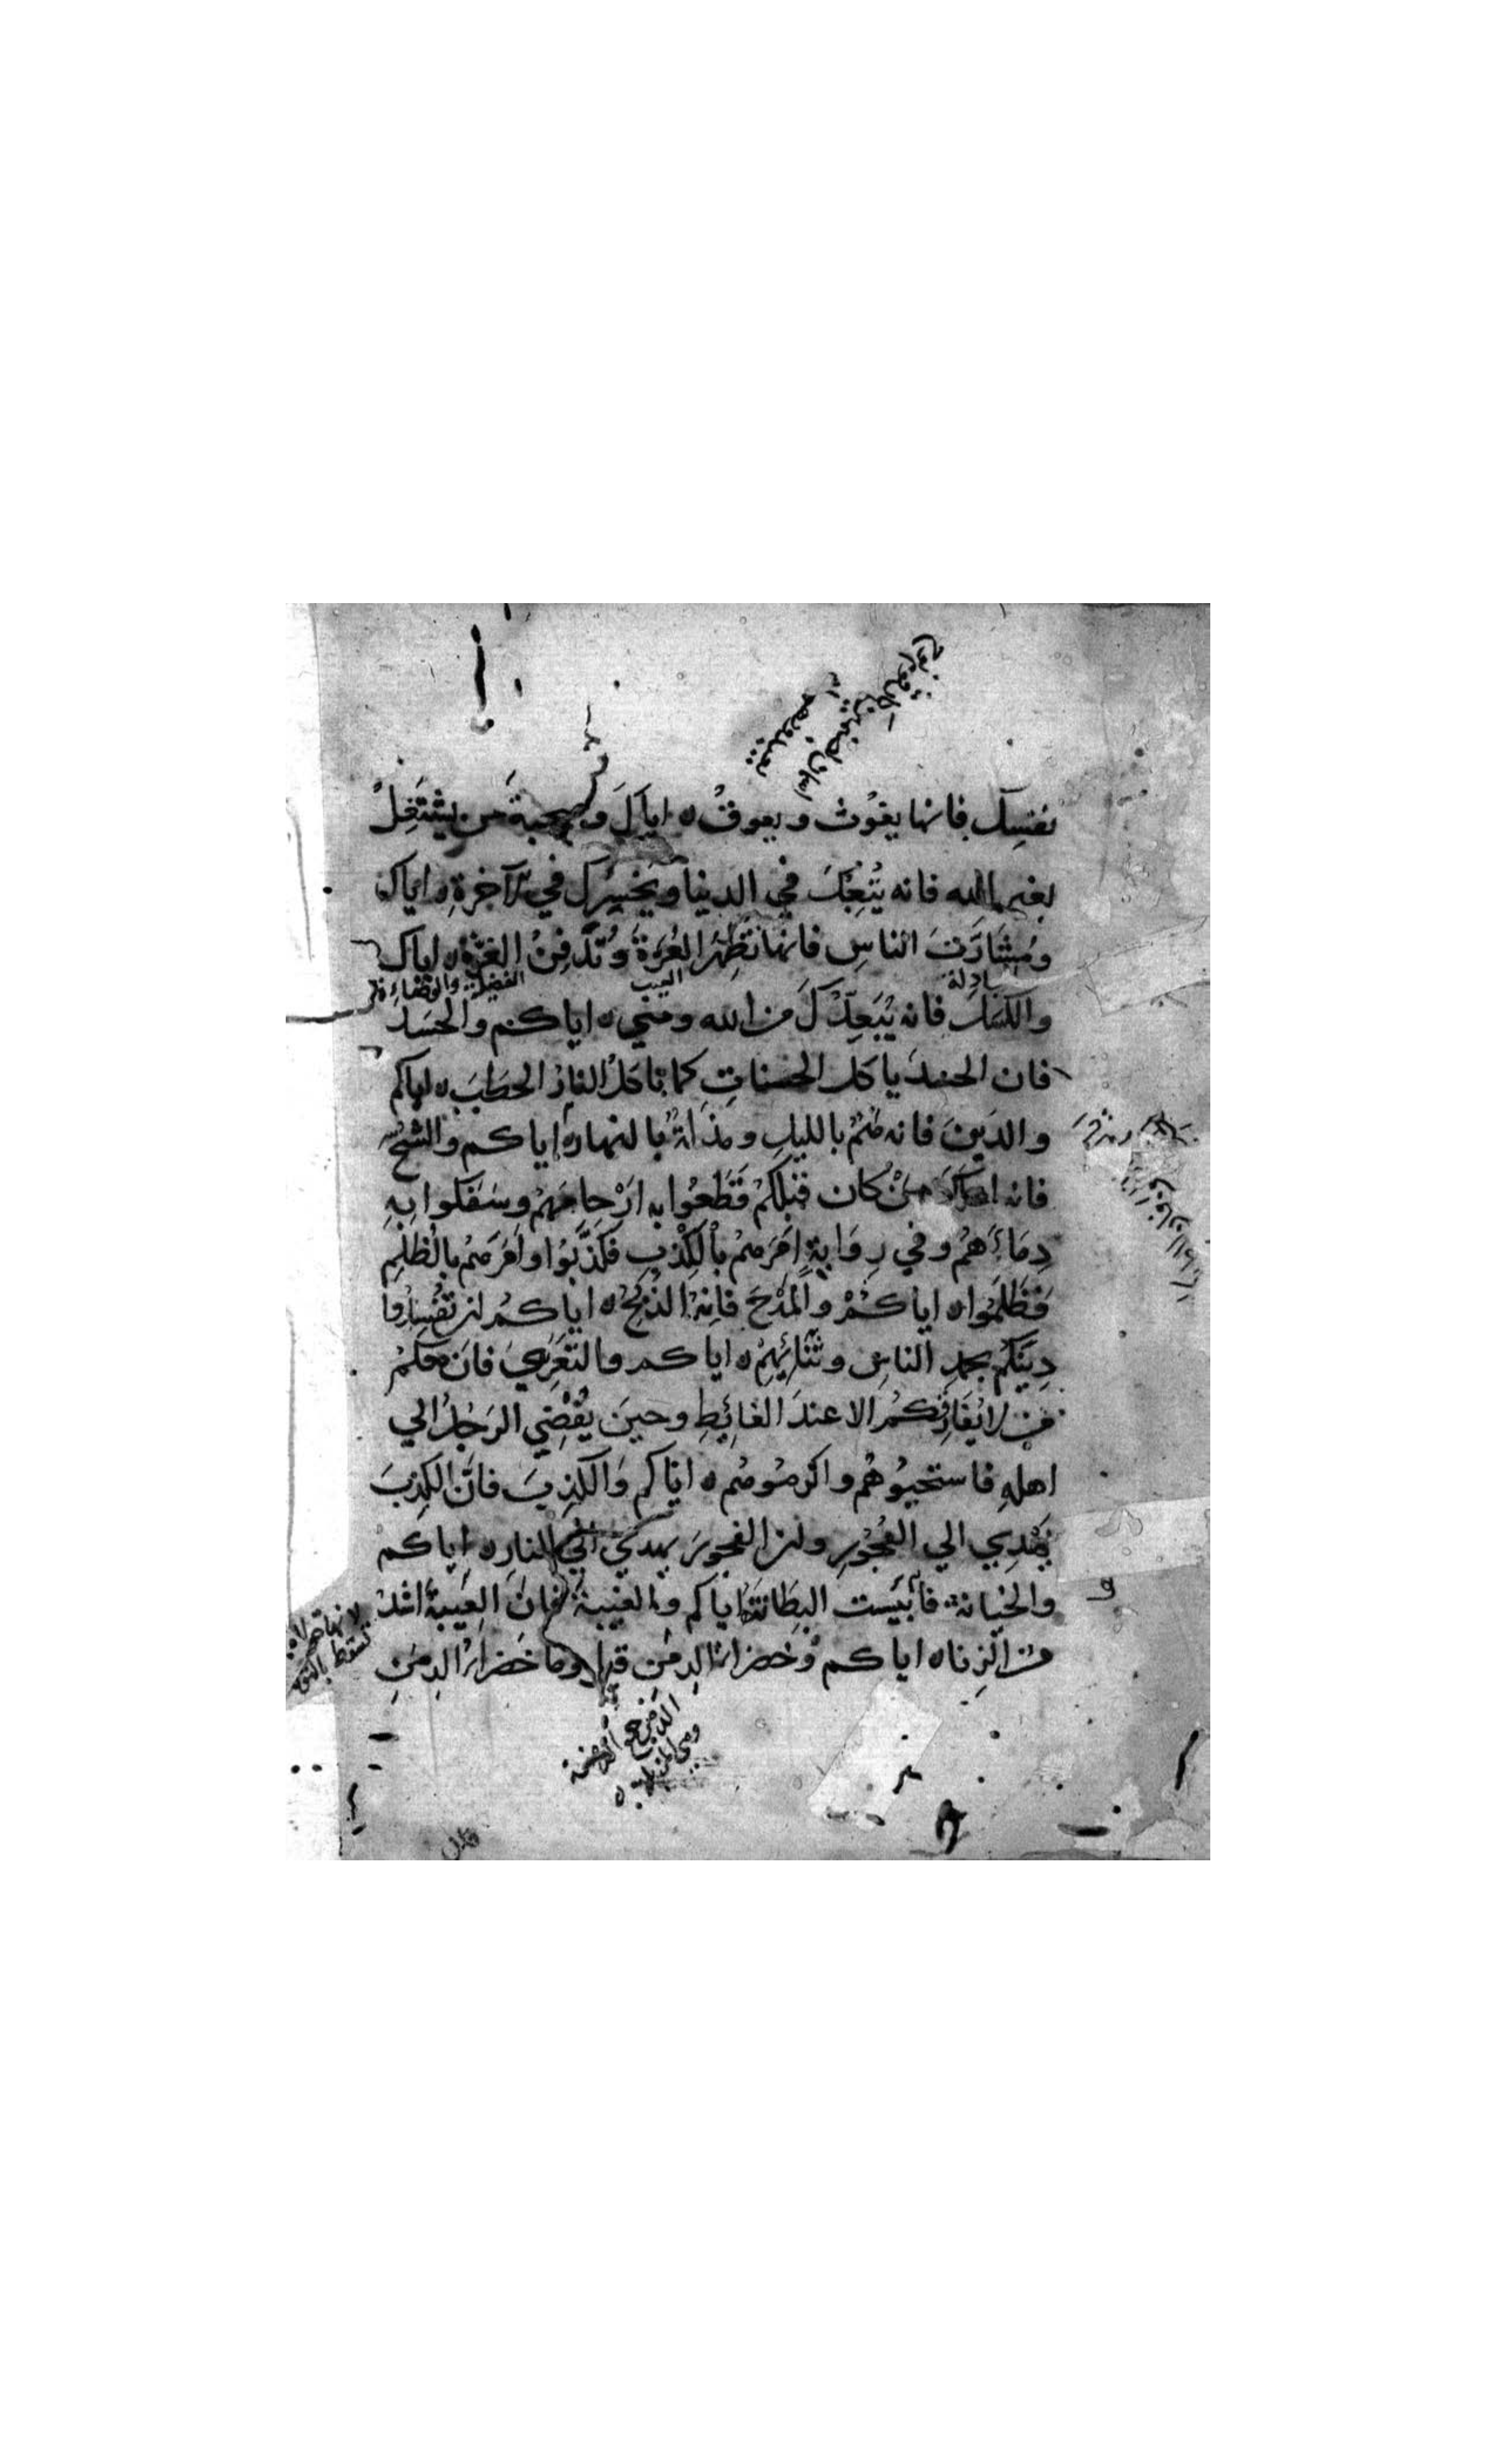 نفسك فانها يفوت ويعوق ه اياك وصحبة من يشتغل
بغير الله فانه يتعبك في الدنيا ويخسرك في الآخرة ه اياك
ومشارّت الناس فانها تظهر العرة وتدفن الغرة ه اياك
العيب
الفضيل
والكسل فانه يبعدك من الله ومني ه اياكم والحسد
فان الحسد ياكل الحسنات كما تاكل النار الحطب ه اياكم
والدين فانه همّ بالليل ومذلة بالنهار ه اياكم والشح
فانه من كان قبلكم فقطعوا به ارحامهم وسفكوا به
دماءهم وفي رواية امرهم بالكذب فكذبوا وامرهم بالظلم
فظلموا ه اياكم والمدح فانه الذبح ه اياكم ان تفسدوا
دينكم بحمد الناس وثنائهم ه اياكم والتعري فان معكم
من لا يفارقكم الا عند الغائط وحين يفضي الرجل الي
اهله فاستحيوهم واكرموهم ه اياكم والكذب فان الكذب
يهدي الي الفجور وان الفجور يهدي الي النار ه اياكم
والخيانة فانها بئست البطانة اياكم والغيبة فان الغيبة اشد
من الزنا ه اياكم وخضراء الدمن قيل وما خضراء الدمن
الدمن جمع الدمنة
وهي المزبلة ه